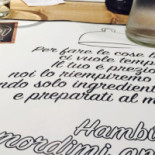 Per fare le cose b
ci vuole temp
Il tuo è prezio
noi lo riempiremo
ndo solo ingredient
e preparati al m
Hambu
mordimi an